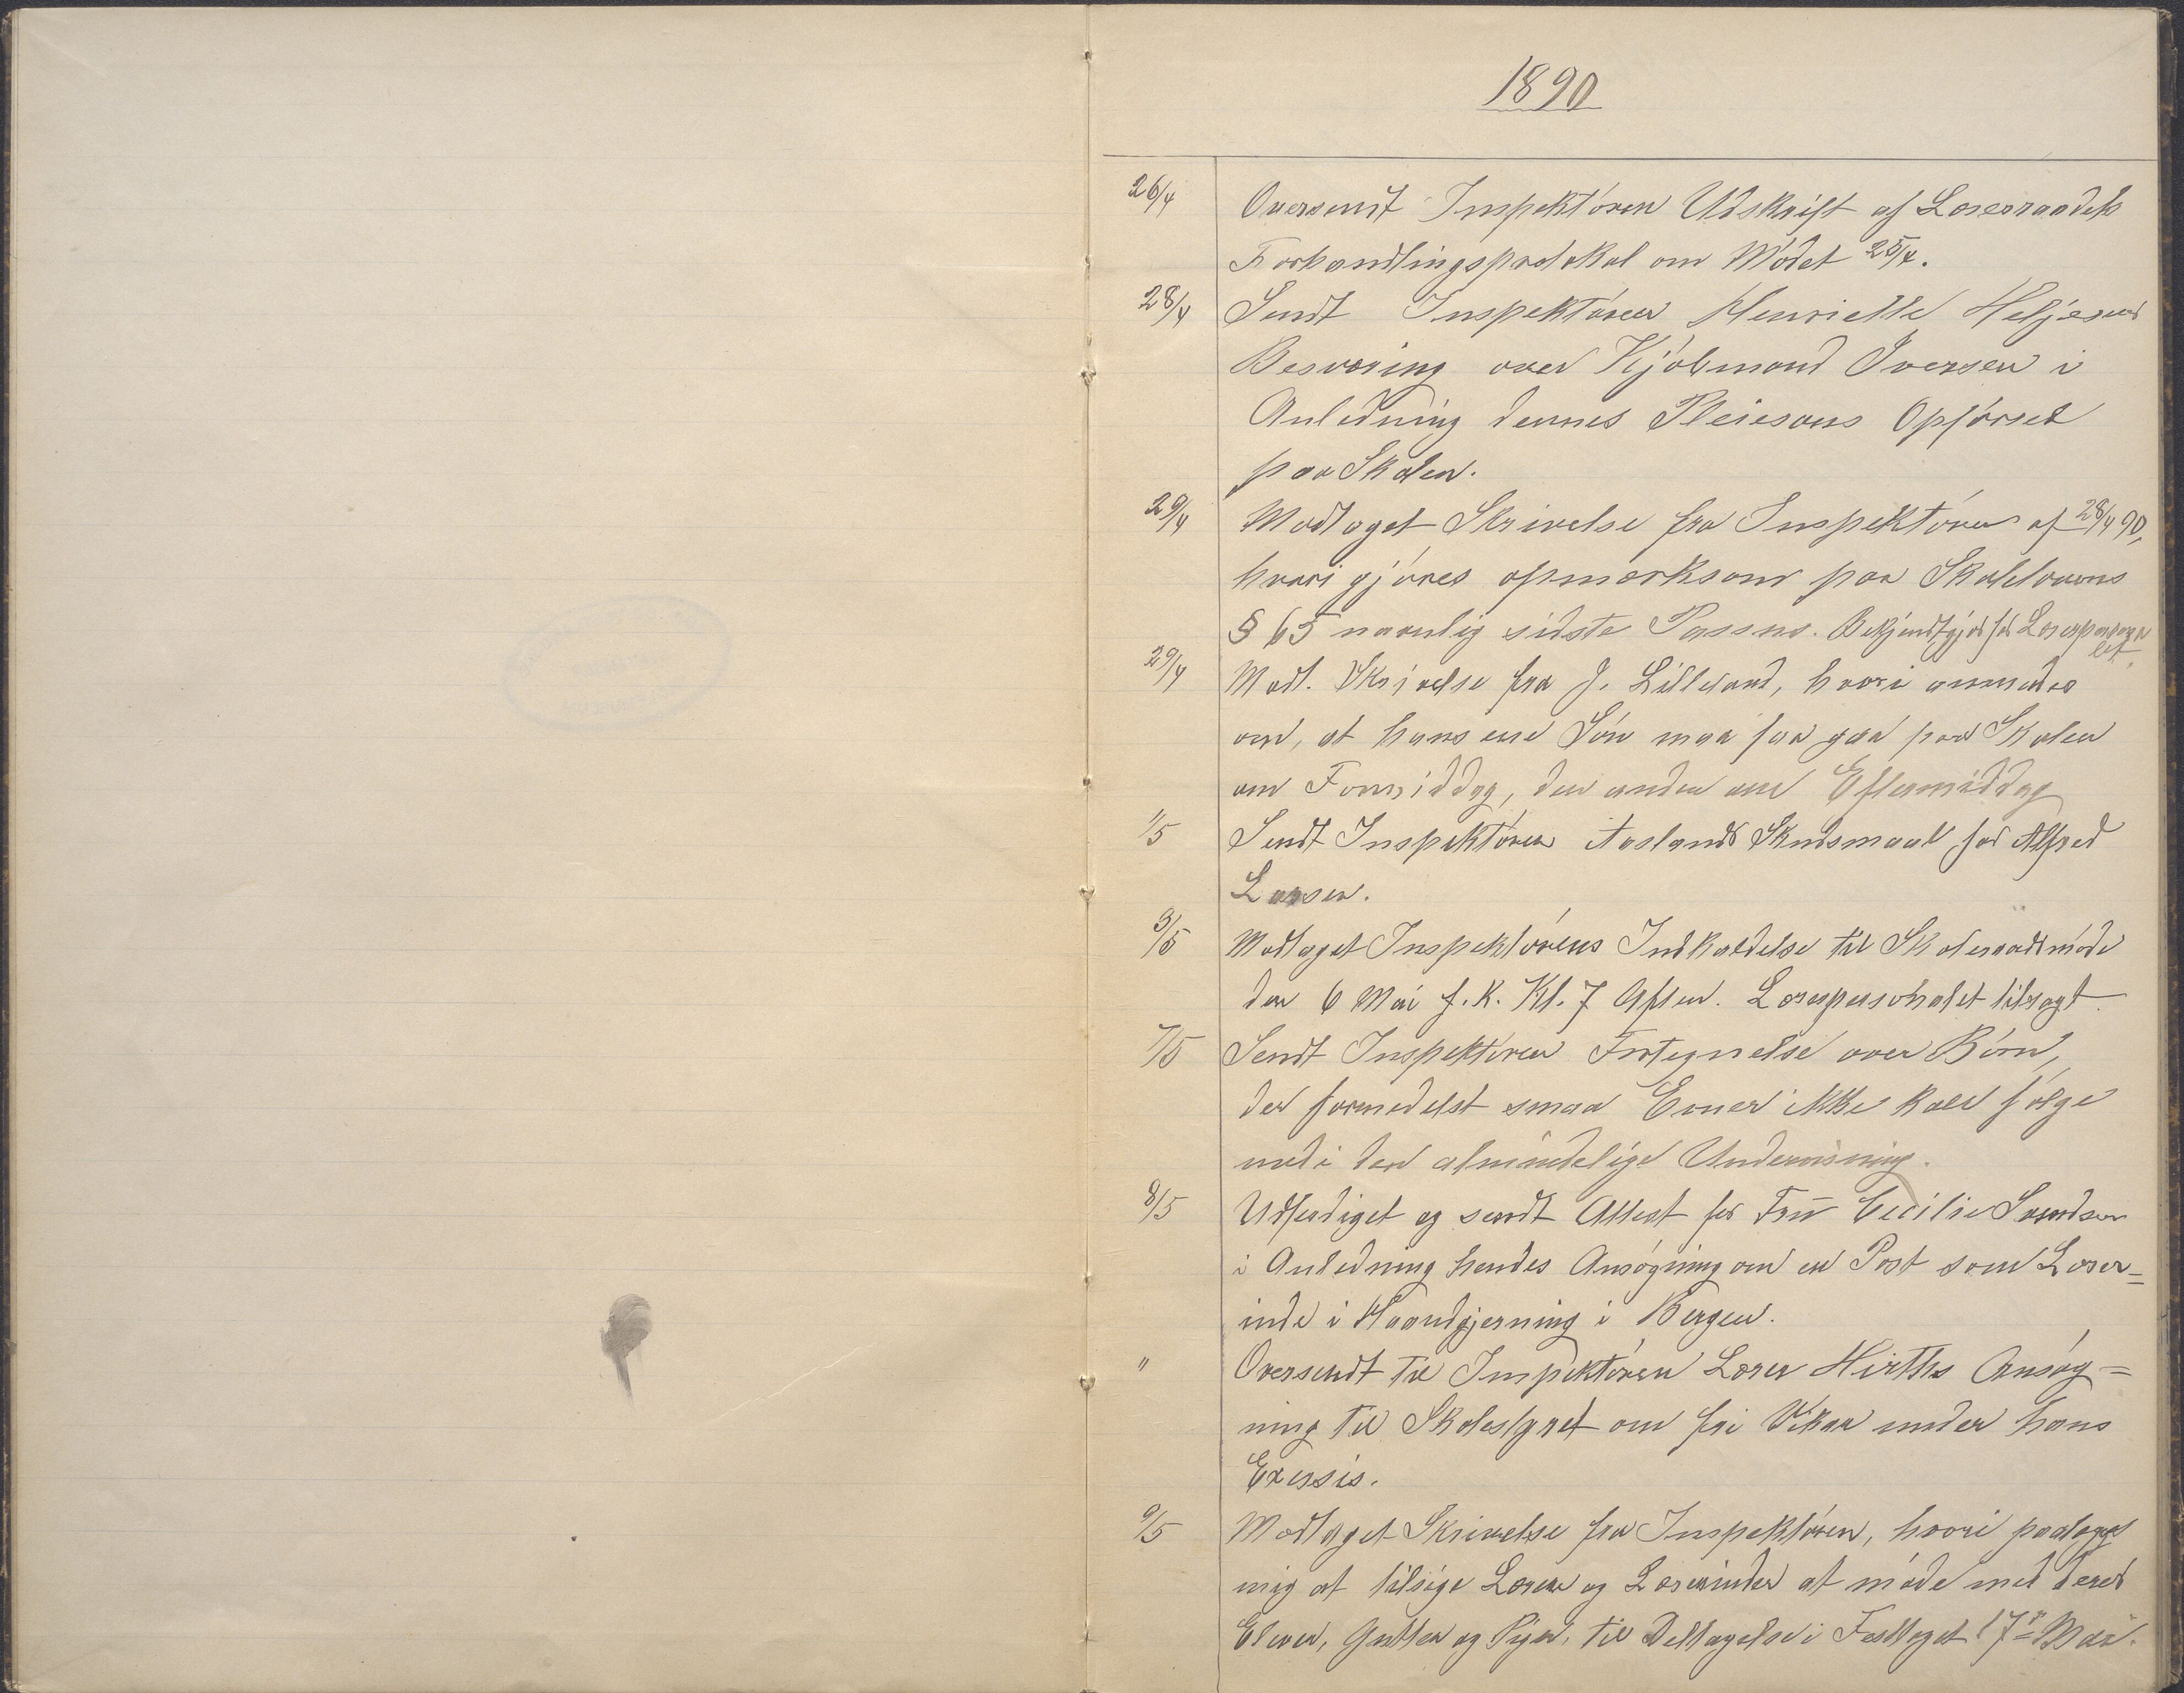 1890
26/4 Oversendt Inspektøren Udskrift af Læreraadets
Forhandlingsprotokol om Mødet 25/4.
28/4 Sendt Inspektøren Henriette Heljesens
Besværing over Kjøbmand Iversen i
Anledning dennes Pleiesøns Opførsel
paa Skolen.
29/4 Modtaget Skrivelse fra Inspektøren af 28/4 90,
hvori gjøres opmærksom paa Skolelovens
§ 65 navnlig sidste Passus. Bekjendtgjort for Lærerpersona
let.
29/4 Modt. Skrivelse fra J. Lillesand, hvori anmodes
om, at hans ene Søn maa faa gaa paa Skolen
om Formiddag, den anden om Eftermiddag
1/5 Sendt Inspektøren Aaslands Skudsmaal for Alfred
Larsen.
3/5 Modtaget Inspektørens Indkaldelse til Skoleraadsmøde
den 6 Mai f. K. Kl. 7 Aften. Lærerpersonalet tilsagt.
7/5 Sendt Inspektøren Fortegnelse over Børn,
der formedelst smaa Evner ikke kan følge
med i den almindelige Undervisning.
8/5 Udferdiget og sendt Attest for Frū Cecilie Svendsen
i Anledning hendes Ansøgning om en Post som Lærer=
inde i Haandgjerning i Bergen.
" Oversendt til Inspektøren Lærer Hirths Ansøg=
ning til Skolestyret om fri Vikar under hans
Exersis.
9/5 Modtaget Skrivelse fra Inspektøren, hvori paalægges
mig at tilsige Lærere og Lærerinder at møde med deres
Elever, Gutter og Piger, til Deltagelse i Festtoget 17de Mai.